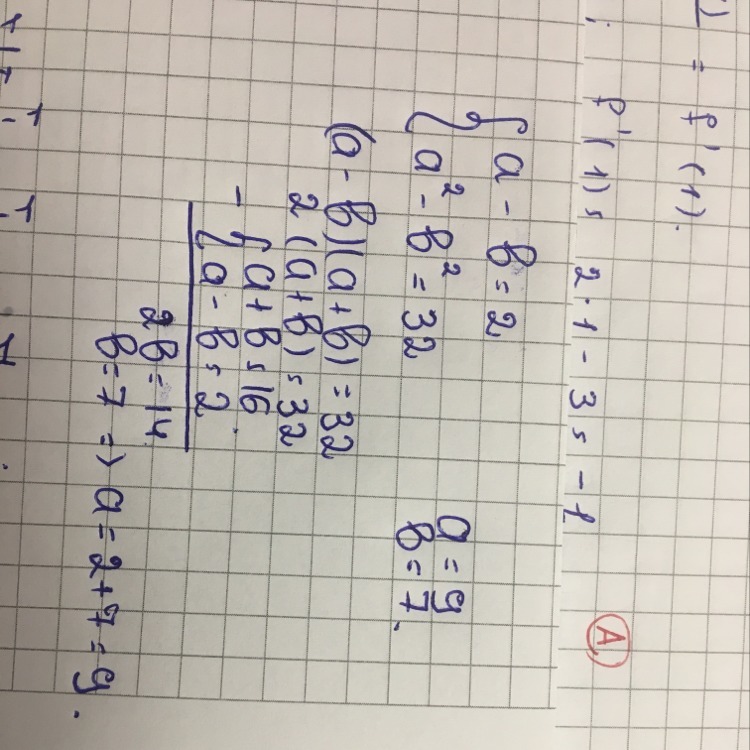 = f'(1).
; f'(1) = 2·1 - 3 = -1
A
{ a - b = 2
{ a² - b² = 32
a = 9
b = 7.
(a - b)(a + b) = 32
2 (a + b) = 32
- { a + b = 16.
{ a - b = 2
2b = 14
b = 7 => a = 2 + 7 = 9.